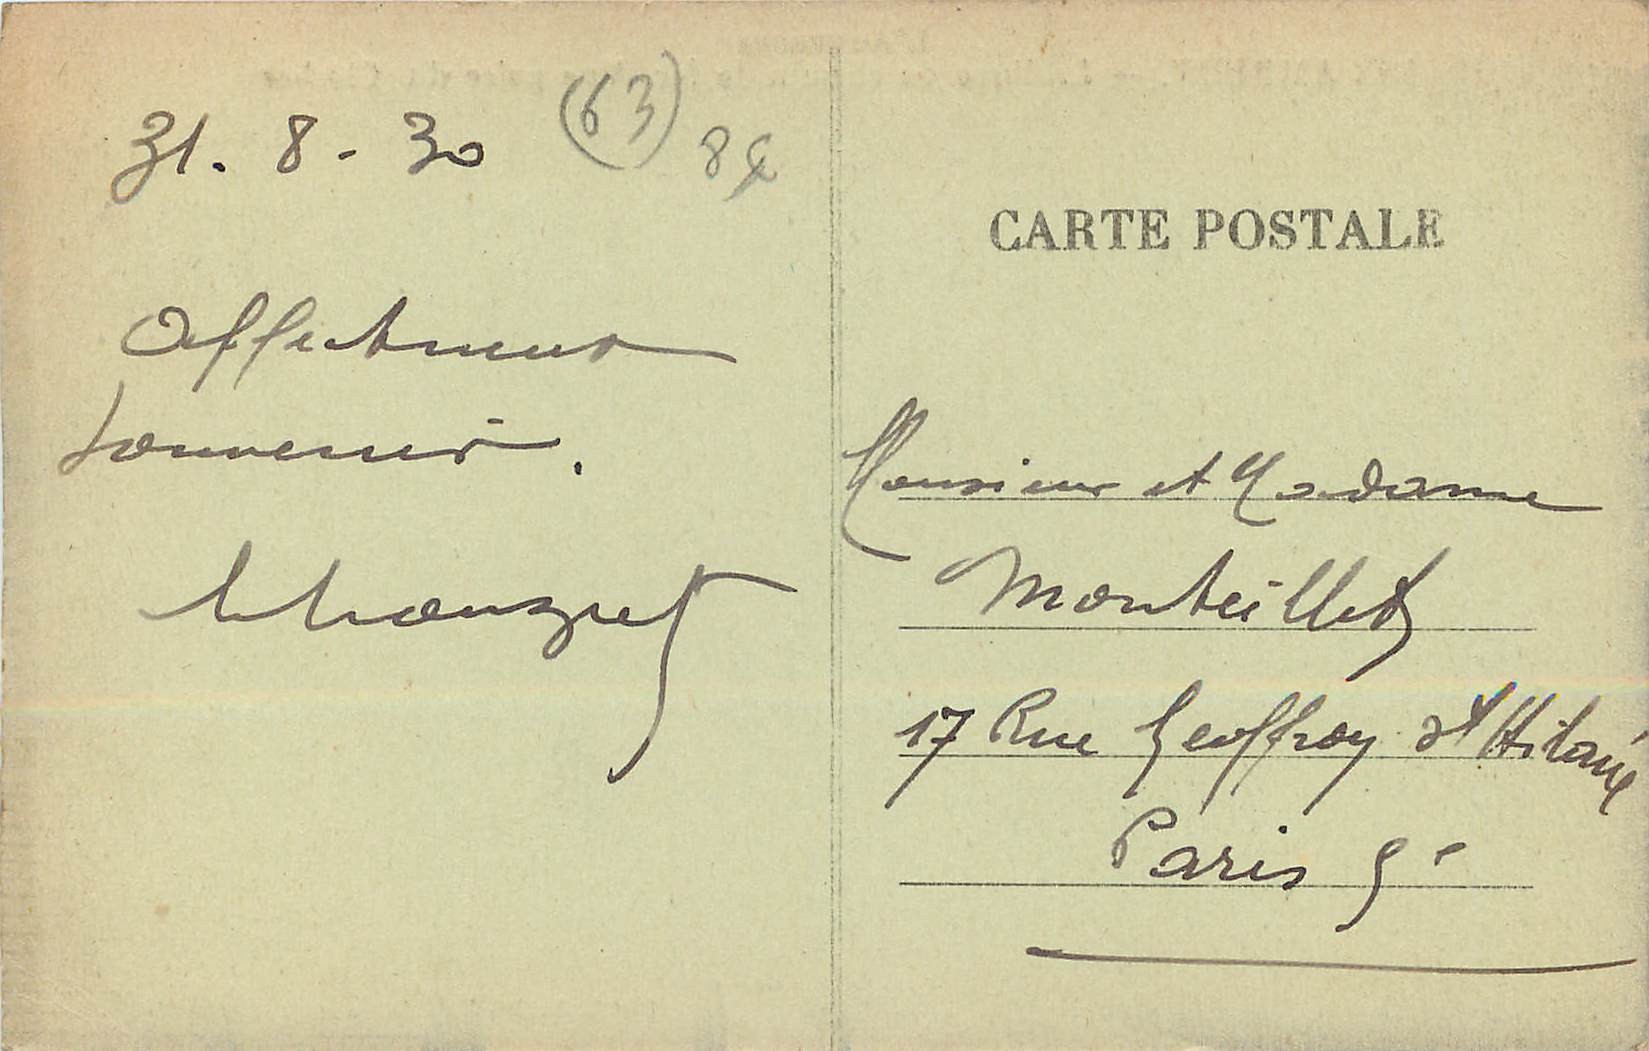 31. 8 - 30
(63)
84
Affectueux
souvenir.
CARTE POSTALE
Monsieur et Madame
Monteillet
17 Rue Geoffroy St Hilaire
Paris 5e